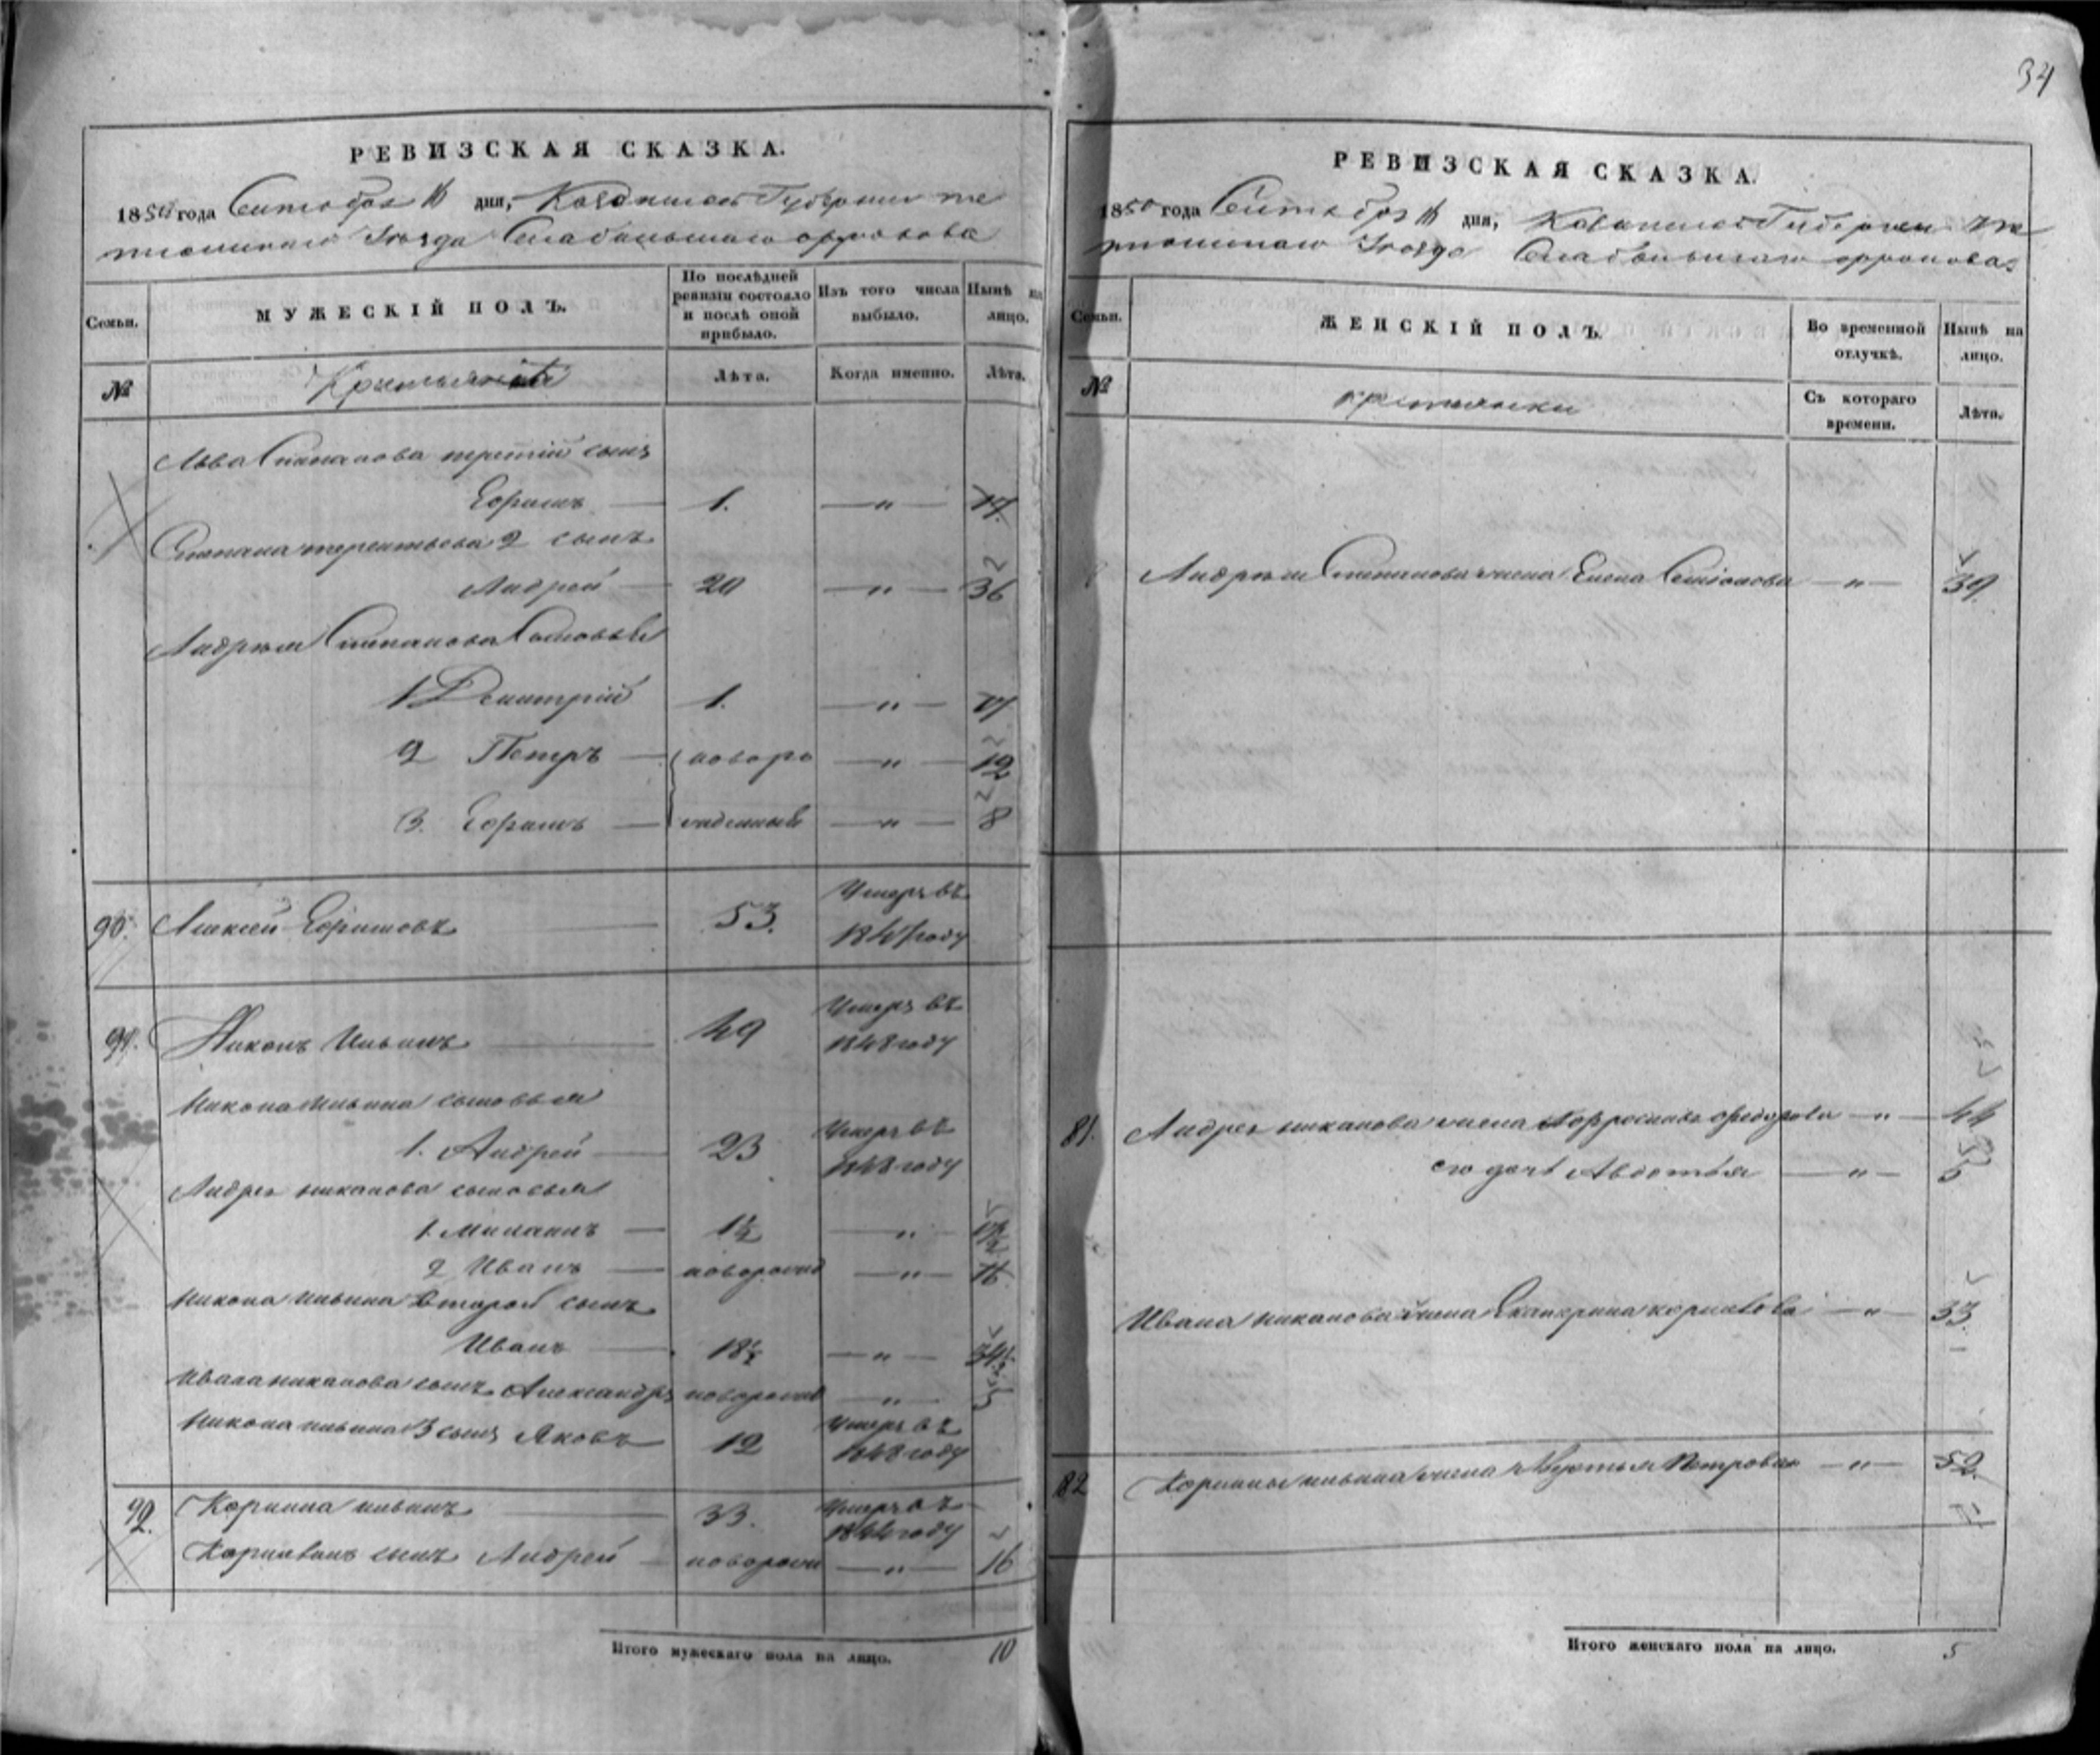 34
РЕВИЗСКАЯ СКАЗКА.
1850 года Сентября дня, Казанской Губернии Те
тюшскаго Уезда
Семьи.
МУЖЕСКІЙ ПОЛЪ.
По послѣдней ревизіи состояло и послѣ оной прибыло.
Изъ того числа выбыло.
Нынѣ на лицо.
№
Крестьяне
Лѣта.
Когда именно.
Лѣта.
Льва Степанова третій сынъ
Ефимъ — 1. — „ — 17
Степана терентьева 2 сынъ
Андрей — 20 — „ — 36
Андрея Степанова Сыновья
1 Дмитрій 1. — „ — 17
2 Петръ — новоро — „ — 12
3. Ефимъ — жденный — „ — 8
90. Алексей Ефимовъ 53. Умеръ въ
году
91. Никонъ Ильинъ 49 Умеръ въ
1848 году
Никона Ильина сыновья
1. Андрей — 23 Умеръ въ
1848 году
Андрея никонова сыновья
1. — 1½ — „ —
2 Иванъ — новорожд — „ — 16
Никона ильина второй сынъ
Иванъ 18½ — „ — 34½
Ивана никонова сынъ Александръ новорожд — „ —
Никона ильина 3 сынъ Яковъ 12 Умеръ въ
1848 году
92. ильинъ 33. Умеръ въ
1844 году
сынъ Андрей — новорожд — „ — 16
Итого мужескаго пола на лицо. 10
РЕВИЗСКАЯ СКАЗКА.
1850 года Сентября дня, Казанской Губернии Те
тюшскаго Уезда
Семьи.
ЖЕНСКІЙ ПОЛЪ.
Во временной отлучкѣ.
Нынѣ на лицо.
№
крестьянки
Съ котораго времени.
Лѣта.
Андрея Степанова жена Елена Семіонова — „ — 39
81. Андрея никонова жена федорова — „ — 44
его дочь Авдотья — „ — 5
Ивана никонова жена Екатерина — „ — 33.
82 ильина жена Петрова — „ — 52.
Итого женскаго пола на лицо. 5